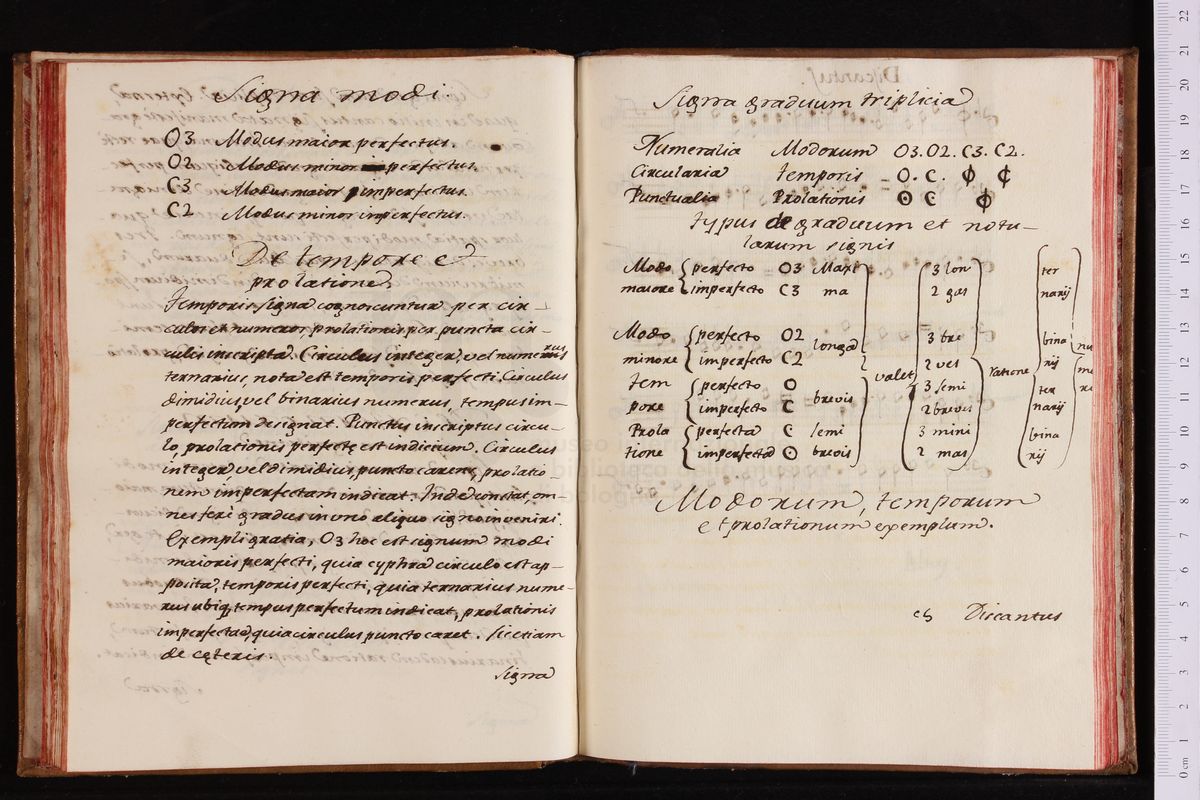 Signa modi.
O3 Modus maior perfectus.
O2 Modus minor perfectus.
C3 Modus maior imperfectus.
C2 Modus minor imperfectus.
De tempore et
prolatione
Temporis signa cognoscuntur per cir-
culos et numeros, prolationis per puncta cir-
culis inscripta. Circulus integer, vel numerus
ternarius, nota est temporis perfecti. Circulus
dimidius, vel binarius numerus, tempus im-
perfectum designat. Punctus inscriptus circu-
lo, prolationis perfectę est indicium. Circulus
integer vel dimidius, puncto carens, prolatio
nem imperfectam indicat. Inde constat, om-
nes ferè gradus in uno aliquo signo inveniri.
Exempli gratia, O3 hoc est signum modi
maioris perfecti, quia cyphra circulo est ap-
posita, temporis perfecti, quia ternarius nume-
rus ubiq; tempus perfectum indicat, prolationis
imperfectae, quia circulus puncto caret. Sic etiam
de cęteris.
Signa
Signa graduum triplicia
Numeralia Modorum O3. O2. C3. C2.
Circularia temporis O. C. Φ ₵
Punctualia Prolationis ʘ C Φ
Typus de graduum et notu-
larum signis
Modo { perfecto O3 Maxi } { 3 lon } { ter
maiore { imperfecto C3 ma 2 gas narij
Modo { perfecto O2 longa = 3 bre bina } nu
minore { imperfecto C2 2 ves rij me
valet ratione
Tem { perfecto O brevis 3 semi ter
pore { imperfecto C 2 breves narij
Prola { perfecta C semi 3 mini bina
tione { imperfecta ʘ brevis 2 mas rij
Modorum, temporum
et prolationum exemplum.
Discantus
museo internazionale
biblioteca della musica
bologna
0 cm 1 2 3 4 5 6 7 8 9 10 11 12 13 14 15 16 17 18 19 20 21 22